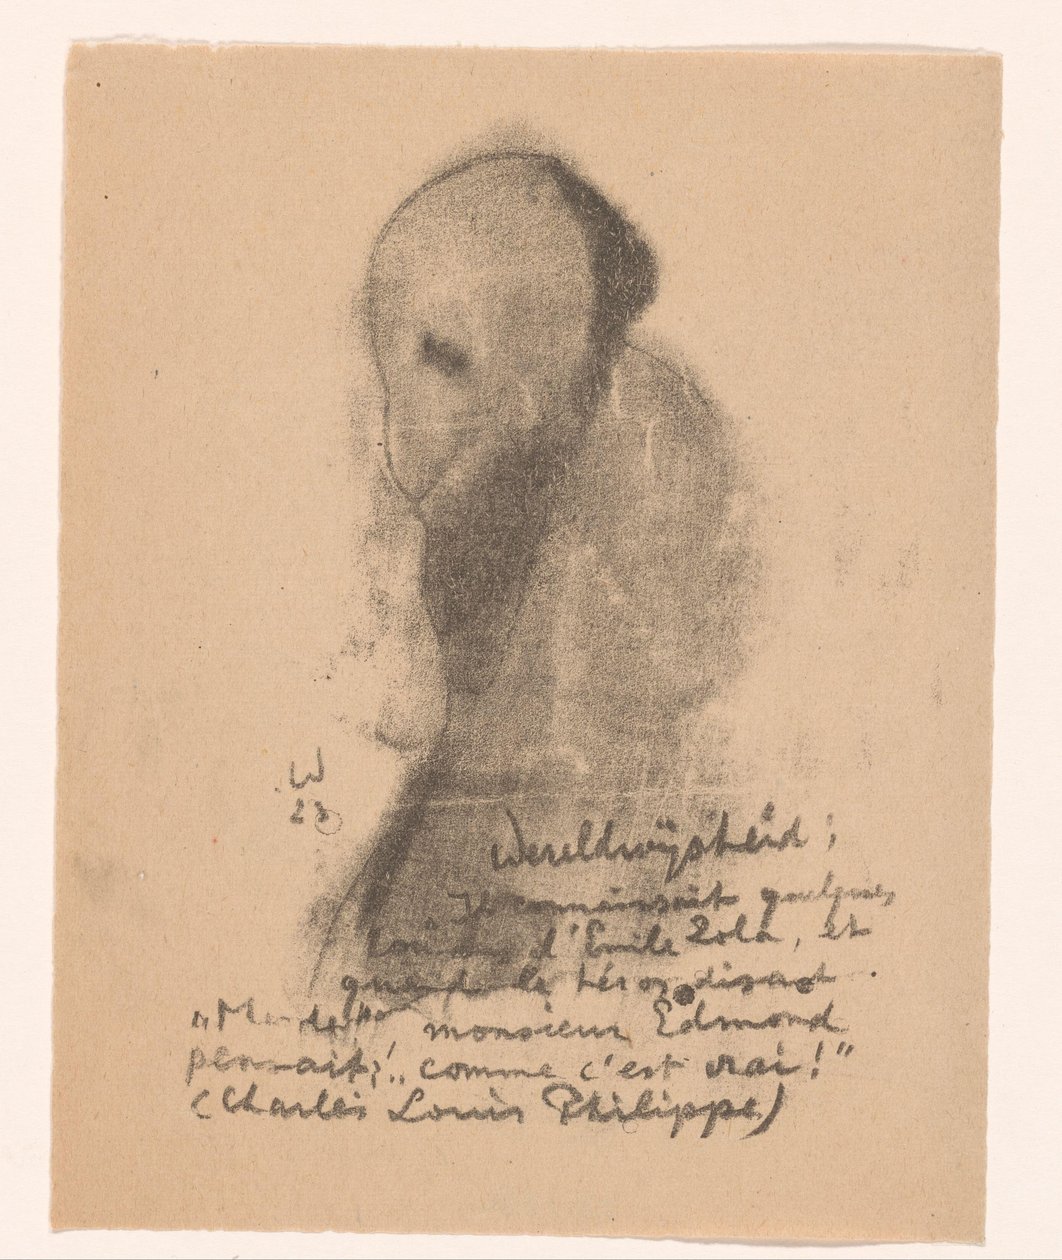 W
23
Wereldwijsheid:
"Il connaissait quelques
romans d'Emile Zola, et
quand le héros disait
"Merde!" monsieur Edmond
pensait: "comme c'est vrai!"
(Charles Louis Philippe)